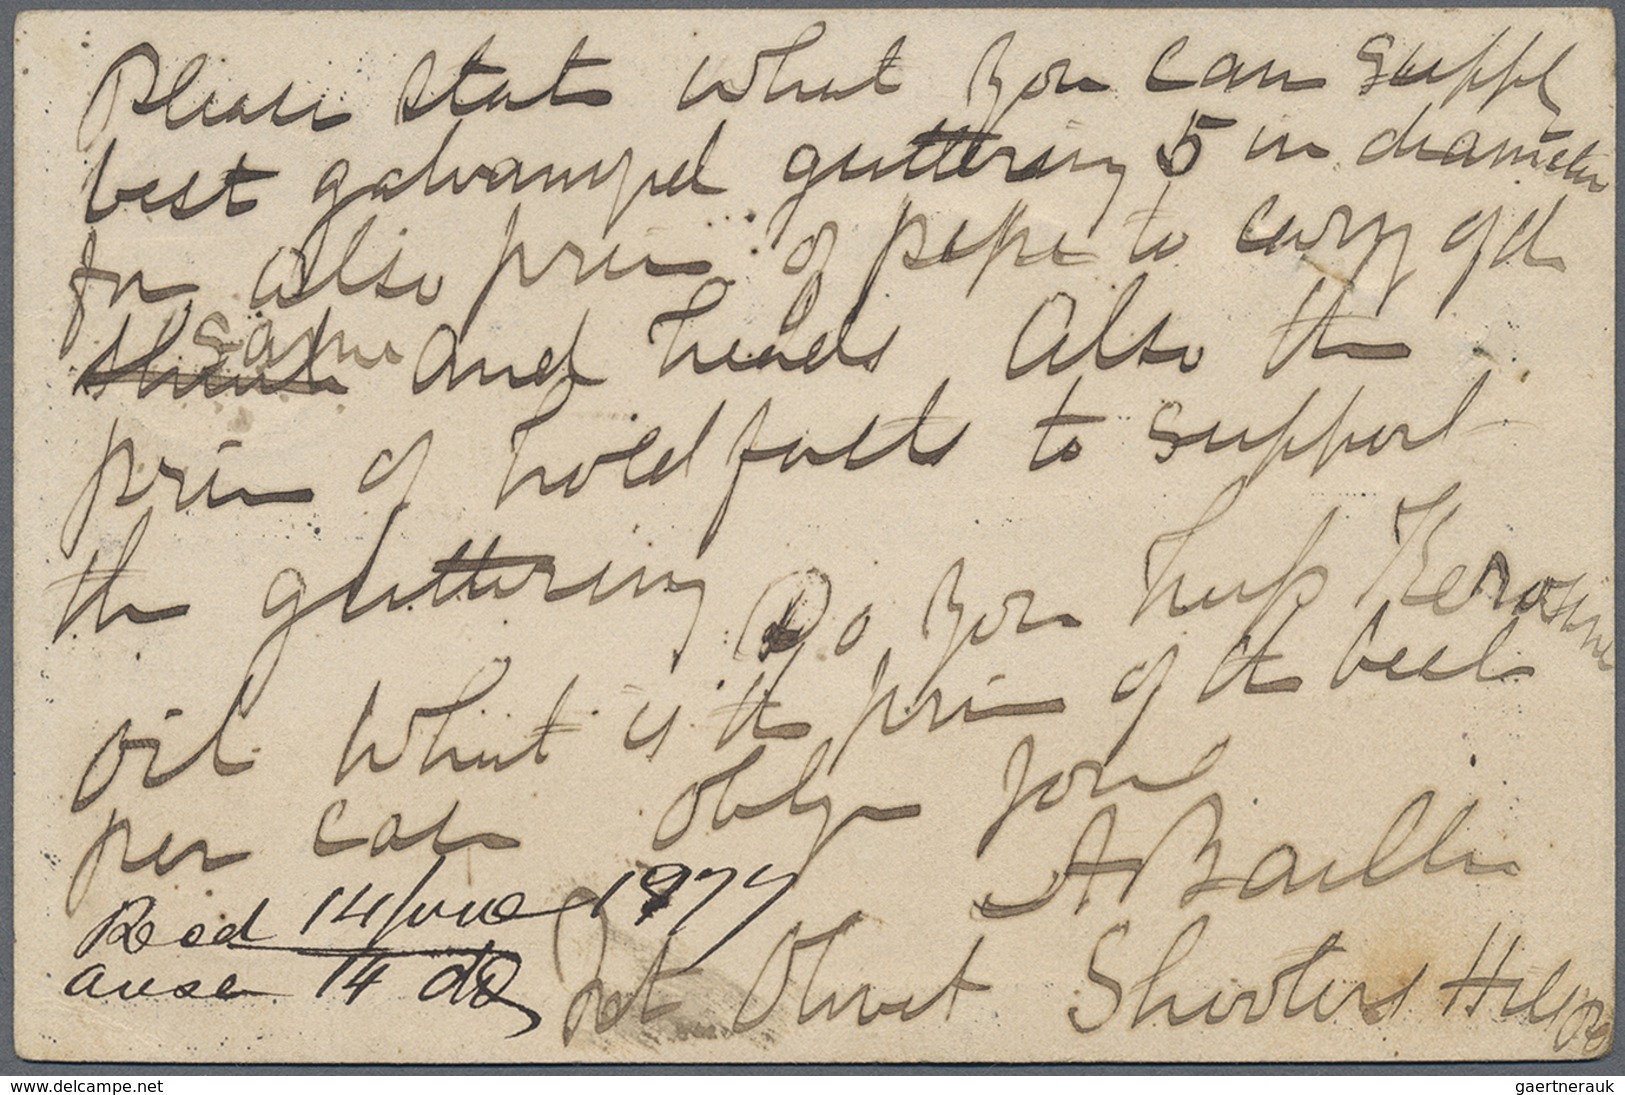 Please state what you can supply
best galvanized guttering 5 in diameter
for also price of pipe to carry of d
same and heads Also the
price of hold fasts to support
the guttering Do you keep Kerosine
oil What is the price of the best
per case Oblge yours
A Baillie
Recd 14 June 1877
ansd 14 do
Mt Olivet Shooters Hill
www.delcampe.net
gaertnerauk